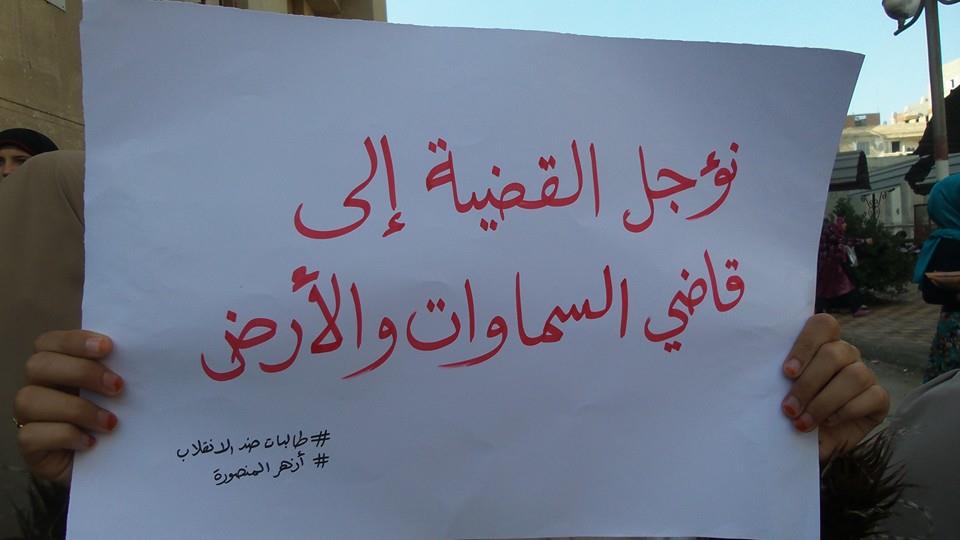 نؤجل القضية إلى
قاضي السماوات والأرض
#طالبات ضد الانقلاب
# أزهر المنصورة